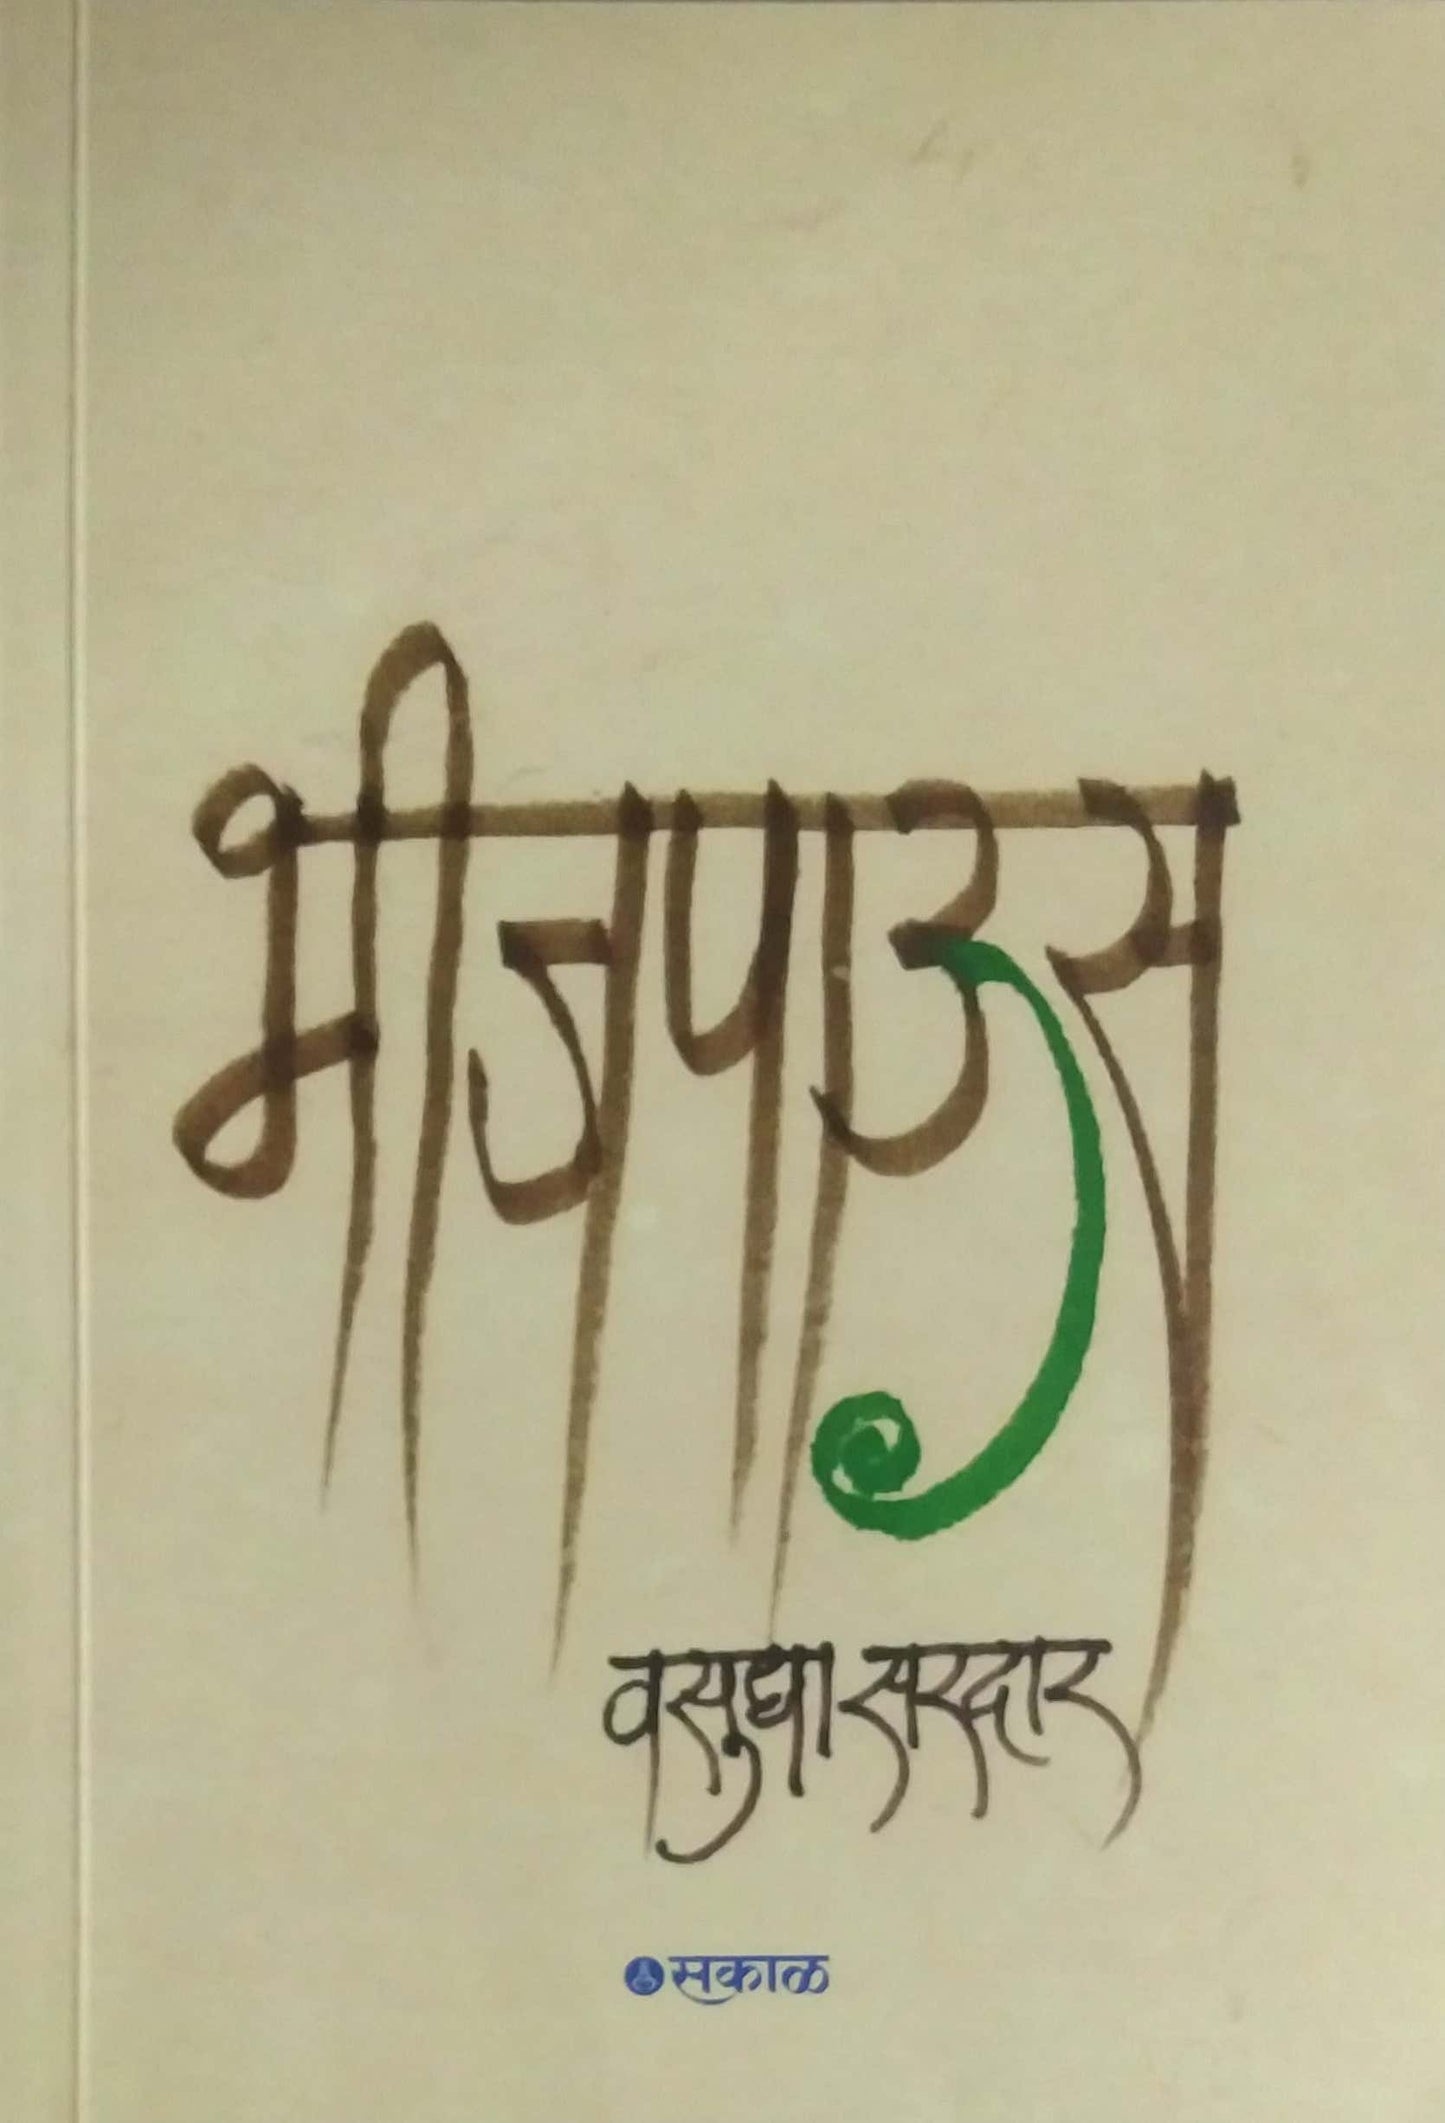 भीजपाऊस
वसुधा सरदार
सकाळ